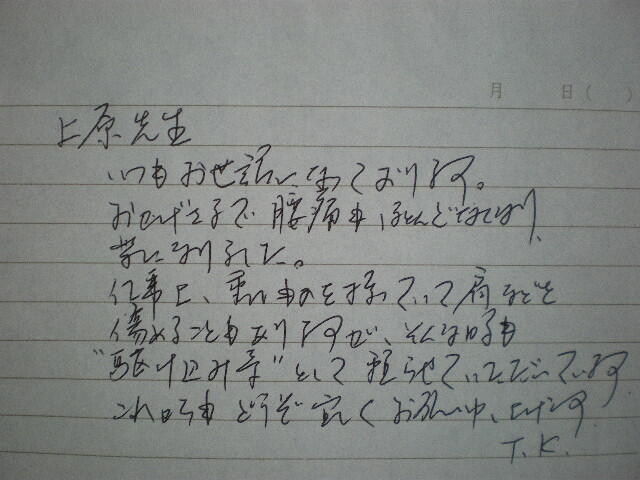 月 日( )
上原先生
いつもお世話になっております。
おかげさまで腰痛もほとんどなくなり、
楽になりました。
仕事上、重いものを持っていて肩などを
傷めることもありますが、そんな時も
"駆け込み寺"として頼らせていただいています
これからもどうぞ宜しくお願い申し上げます
T.K.